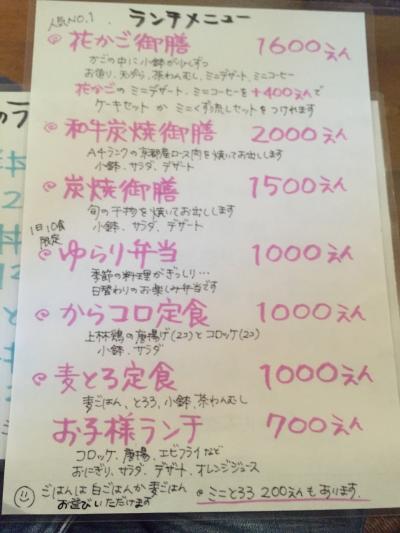 人気NO.1 ランチメニュー
@ 花かご御膳 1600えん
かごの中に小鉢が少しずつ
お造り、天ぷら、茶わんむし、ミニデザート、ミニコーヒー
花かごの ミニデザート、ミニコーヒーを +400えんで
ケーキセット か ミニくず流しセットをつけれます
@ 和牛炭焼御膳 2000えん
A4ランクの京都産ロース肉を焼いてお出しします
小鉢、サラダ、デザート
@ 炭焼御膳 1500えん
旬の干物を焼いてお出しします
小鉢、サラダ、デザート
1日10食
限定
@ ゆらり弁当 1000えん
季節の料理がぎっしり…
日替わりのお楽しみ弁当です
@ からコロ定食 1000えん
上林鶏の唐揚げ(2コ)とコロッケ(2コ)
小鉢、サラダ
@ 麦とろ定食 1000えん
麦ごはん、とろろ、小鉢、茶わんむし
お子様ランチ 700えん
コロッケ、唐揚、エビフライなど
おにぎり、サラダ、デザート、オレンジジュース
ごはんは 白ごはんか 麦ごはん
お選びいただけます
@ ミニとろろ 200えんもあります。